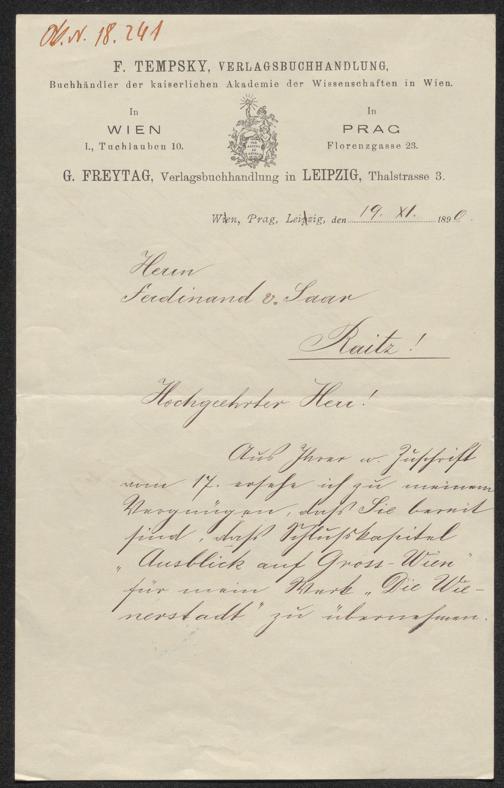 Ob.N. 18.241
F. TEMPSKY, VERLAGSBUCHHANDLUNG,
Buchhändler der kaiserlichen Akademie der Wissenschaften in Wien.
In
WIEN
I., Tuchlauben 10.
In
PRAG
Florenzgasse 23.
G. FREYTAG, Verlagsbuchhandlung in LEIPZIG, Thalstrasse 3.
Wien, Prag, Leipzig, den 19. XI. 1890.
Herrn
Ferdinand v. Saar
Raitz!
Hochgeehrter Herr!
Aus Ihrer w. Zuschrift
vom 17. ersehe ich zu meinem
Vergnügen, daß Sie bereit
sind, daß Schlußkapitel
„Ausblick auf Gross-Wien"
für mein Werk „Die Wie-
nerstadt" zu übernehmen.